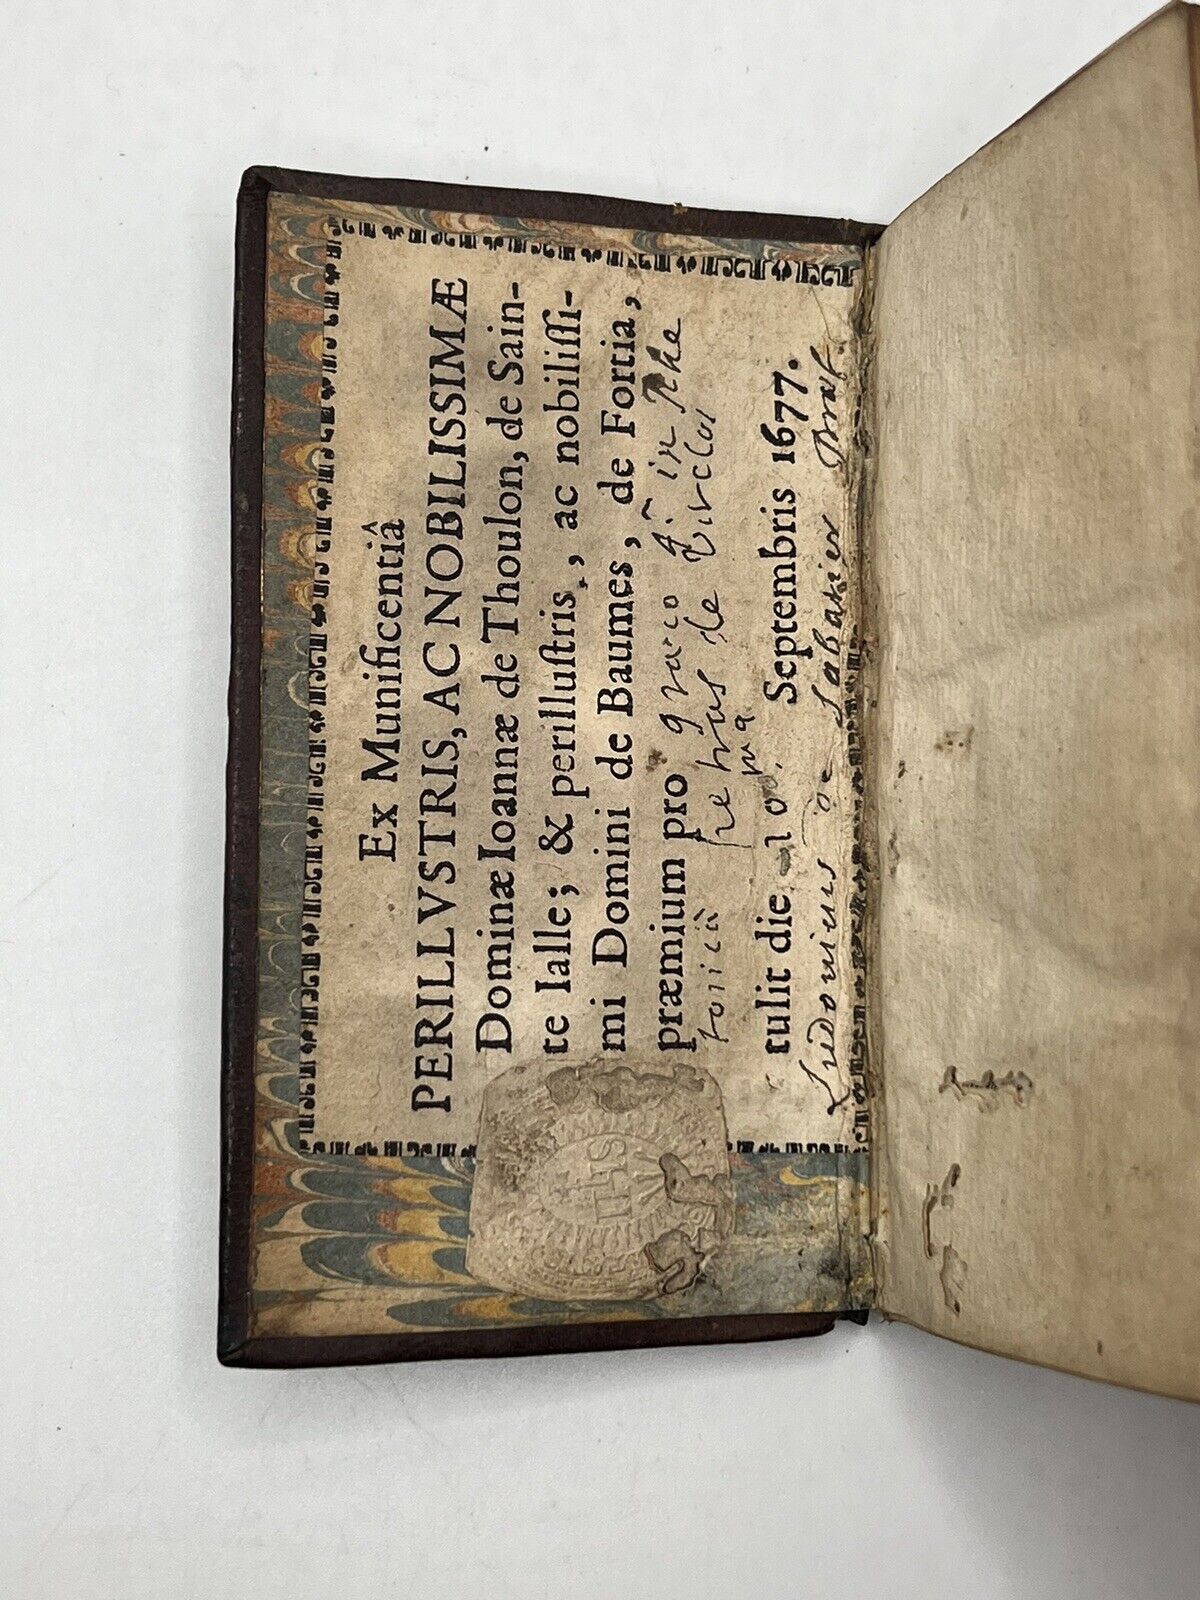 Ex Munificentiâ
PERILLVSTRIS, AC NOBILISSIMÆ
Dominæ Ioannæ de Thoulon, de Sain-
te Ialle; & perilluſtris, ac nobiliſſi-
mi Domini de Baumes, de Fortia,
præmium pro græco in Rhe
toricâ petrus de
tulit die 10. Septembris 1677.
Ludovicus de Sabatier Præf.
IHS